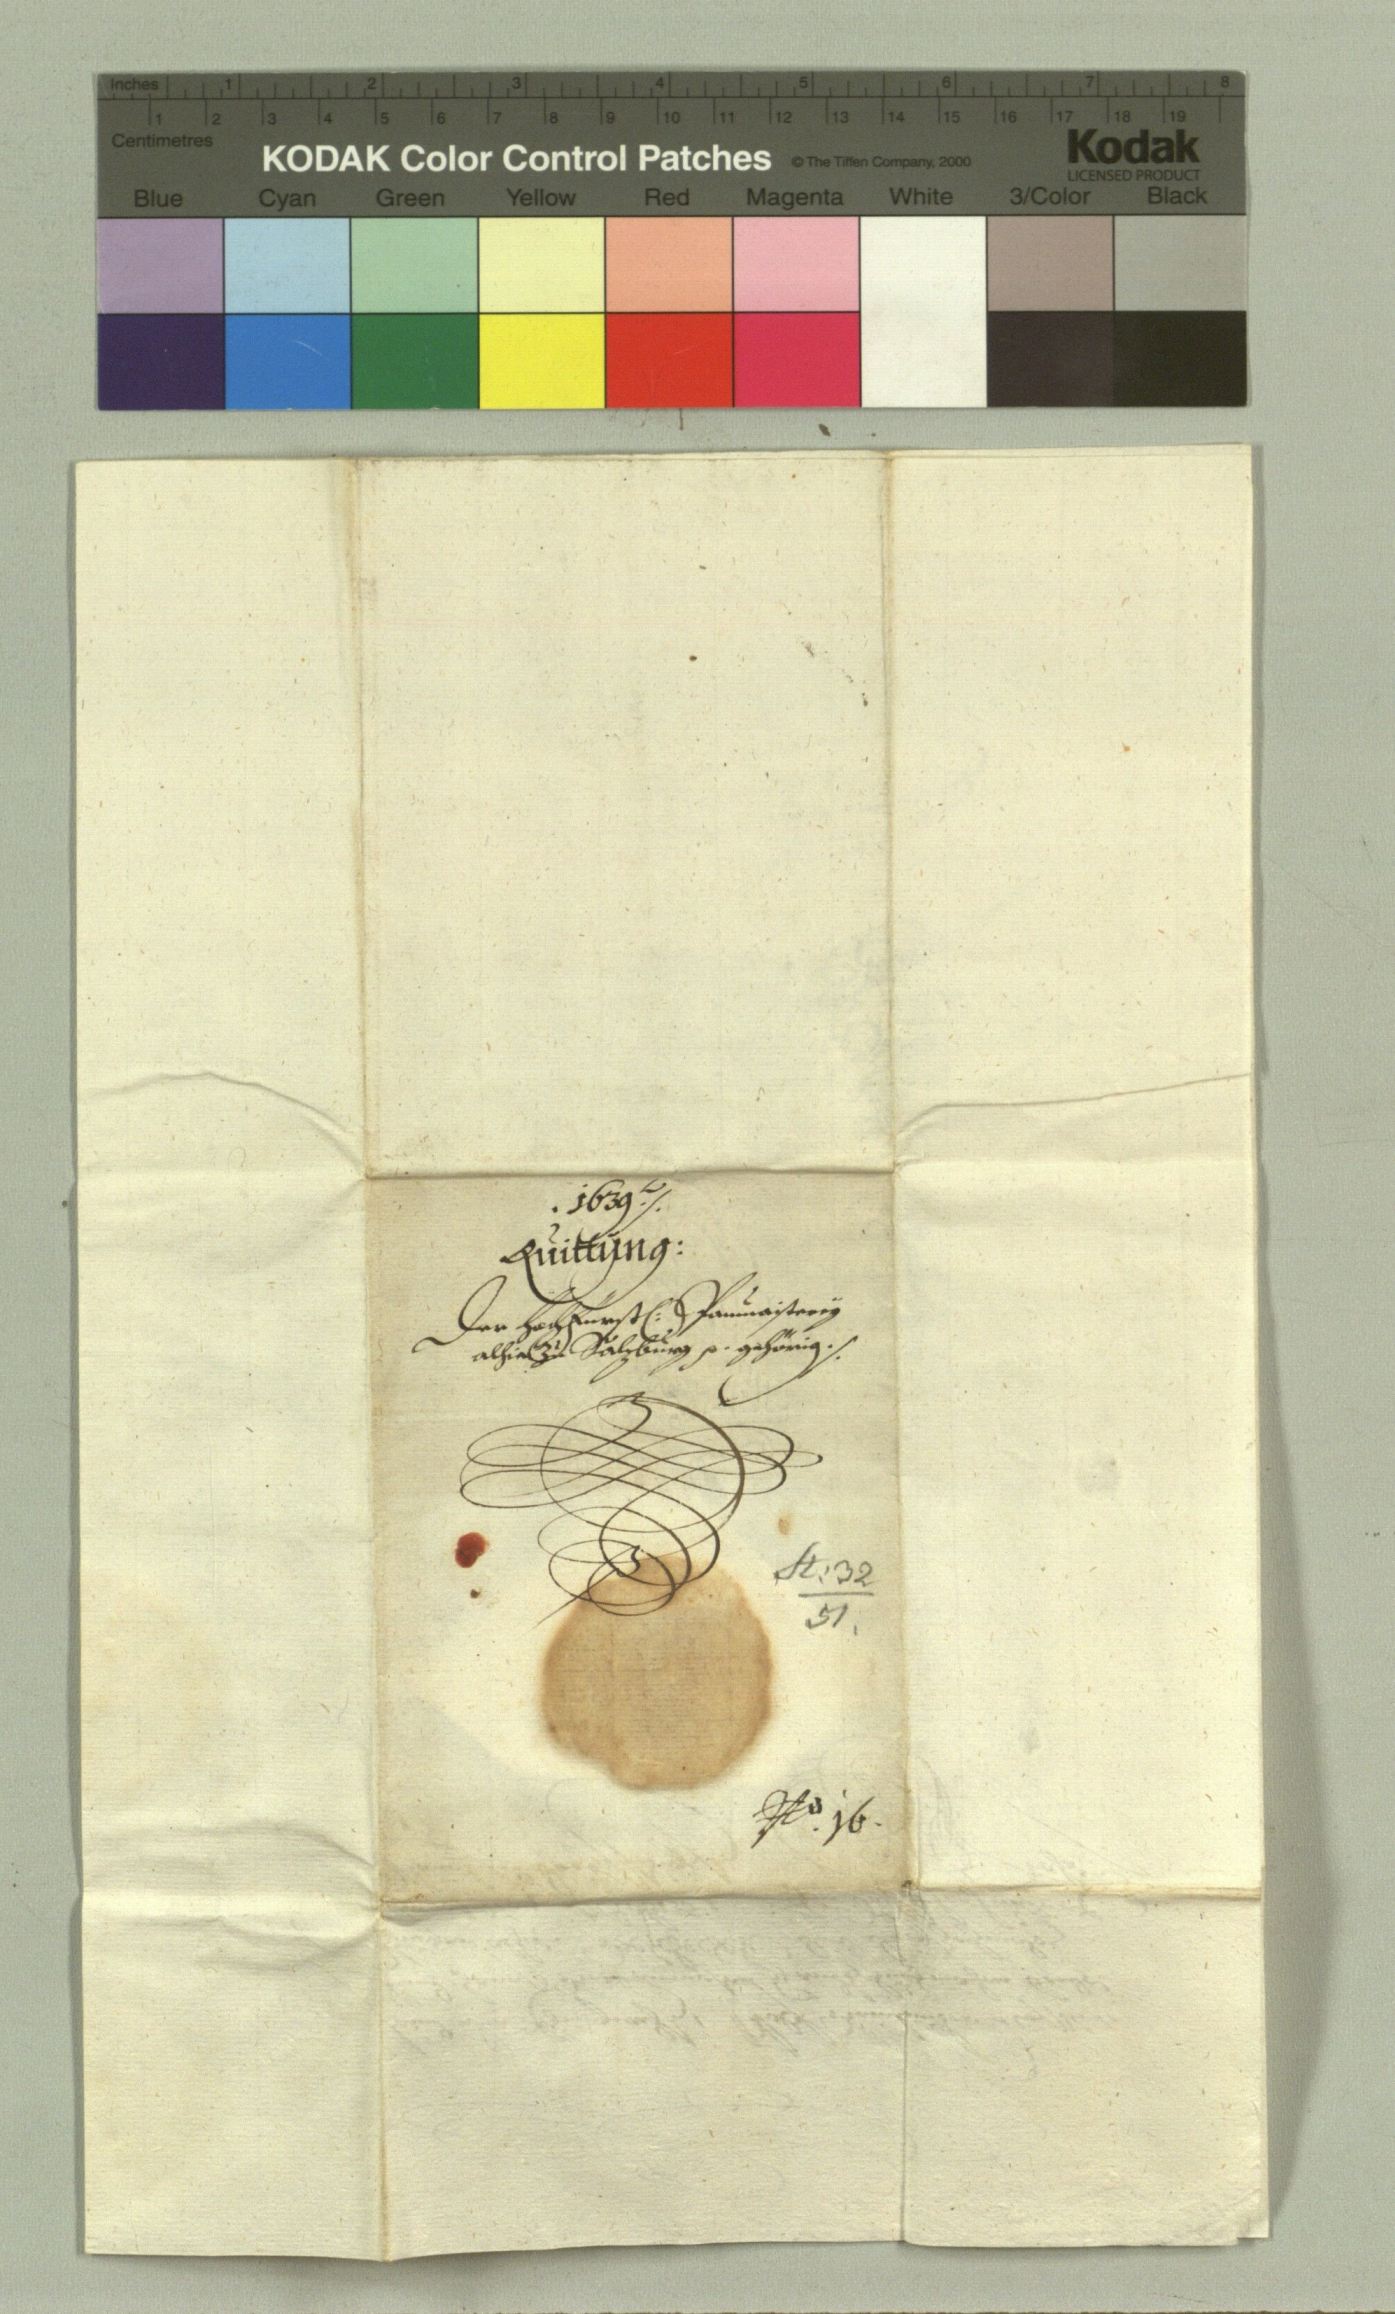 Inches 1 2 3 4 5 6 7 8
1 2 3 4 5 6 7 8 9 10 11 12 13 14 15 16 17 18 19
Centimetres
KODAK Color Control Patches © The Tiffen Company, 2000 Kodak
LICENSED PRODUCT
Blue Cyan Green Yellow Red Magenta White 3/Color Black
. 1639 ./.
Quittung:
Der Hochfürstl: Paumaisterey
alhie Zu Salzburg p. gehörig ./.
St: 32
51.
No. 16.